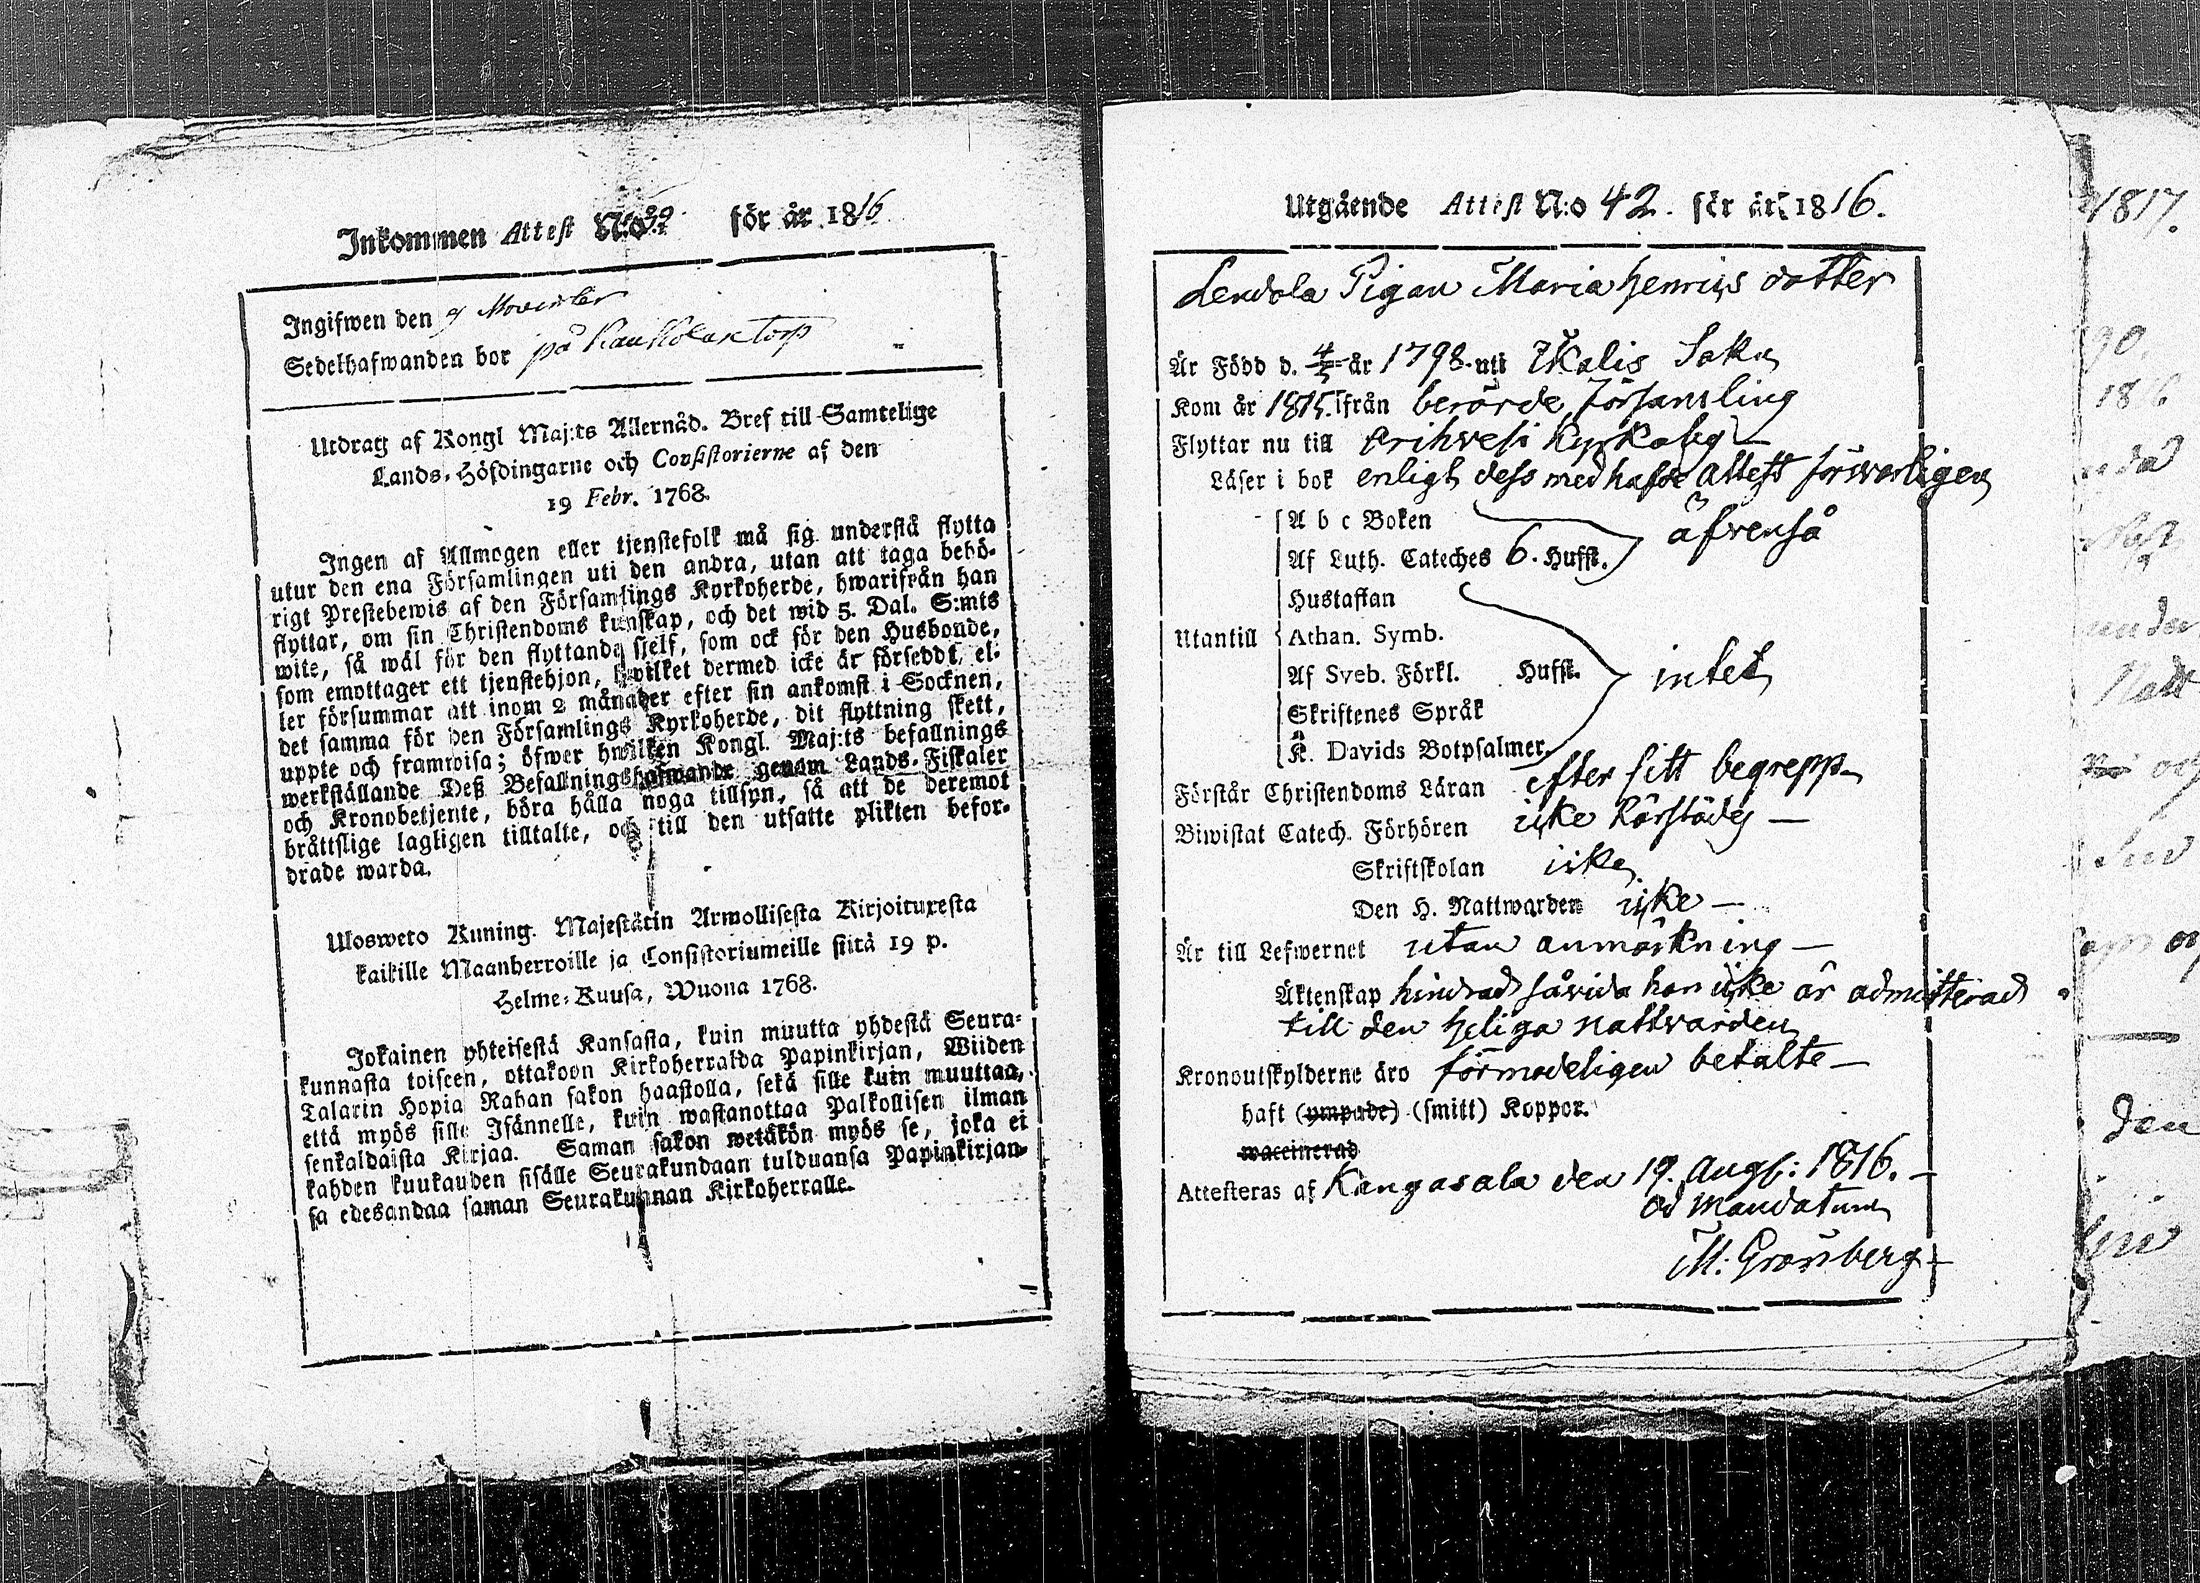 Inkommen Attest N:o 39 för år 1816
Ingifwen den 9 November
Sedelhafwanden bor på Kaukolan Torp
Utdrag af Kongl Maj:ts Allernåd. Bref till Samtelige
Lands-Höfdingarne och Consistorierne af den
19 Febr. 1768.
Ingen af Allmogen eller tjenstefolk må sig understå flytta
utur den ena Församlingen uti den andra, utan att taga behö-
rigt Prestebewis af den Församlings Kyrkoherde, hwarifrån han
flyttar, om sin Christendoms kunskap, och det wid 5. Dal. S:mts
wite, så wäl för den flyttande sjelf, som ock för den Husbonde,
som emottager ett tjenstehjon, hwilket dermed icke är förseddt, el-
ler försummar att inom 2 månader efter sin ankomst i Socknen,
det samma för den Församlings Kyrkoherde, dit flyttning skett,
uppte och framwisa; öfwer hwilken Kongl. Maj:ts befallnings
werkställande Deß Befallningshafwande genom Lands-Fiskaler
och Kronobetjente, böra hålla noga tillsyn, så att de deremot
bråttslige lagligen tilltalte, och till den utsatte plikten befor-
drade warda.
Ulosweto Kuning. Majestätin Armollisesta Kirjoituxesta
kaikille Maanherroille ja Consistoriumeille siitä 19 p.
Helme-Kuusa, Wuona 1768.
Jokainen yhteisestä Kansasta, kuin muutta yhdestä Seura-
kunnasta toiseen, ottakoon Kirkoherralda Papinkirjan, Wiiden
Talarin Hopia Rahan sakon haastolla, sekä sille kuin muuttaa,
että myös sille Isännelle, kuin wastanottaa Palkollisen ilman
senkaldaista Kirjaa. Saman sakon wetäkön myös se, joka ei
kahden kuukauden sisälle Seurakundaan tulduansa Papinkirjan-
sa edesandaa saman Seurakunnan Kirkoherralle.
Utgående Attest N:o 42. för år 1816.
Lendola Pigan Maria Henrics dotter
Är Född d. 4/5 år 1798. uti Ikalis Sokn
Kom år 1815. ifrån berörde Församling
Flyttar nu till Orihvesi Kyrkoby
Läser i bok enligt dess medhafde Attest försvarligen
A b c Boken
Af Luth. Cateches 6. Hufst. äfvenså
Hustaflan
Utantill Athan. Symb.
Af Sveb. Förkl. Hufst. intet
Skriftenes Språk
K. Davids Botpsalmer.
Förstår Christendoms Läran efter sitt begrepp
Biwistat Catech. Förhören icke härstädes
Skriftskolan icke
Den H. Nattwarden icke
Är till Lefwernet utan anmärkning
Äktenskap hindrad såvida hon icke är admitterad
till den heliga nattvarden
Kronoutskylderne äro förmodeligen betalte
haft (ympade) (smitt) Koppor.
waccinerad
Attesteras af Kangasala den 19. Augs: 1816.
ad mandatum
M: Grönberg
1817.
90.
1816
den